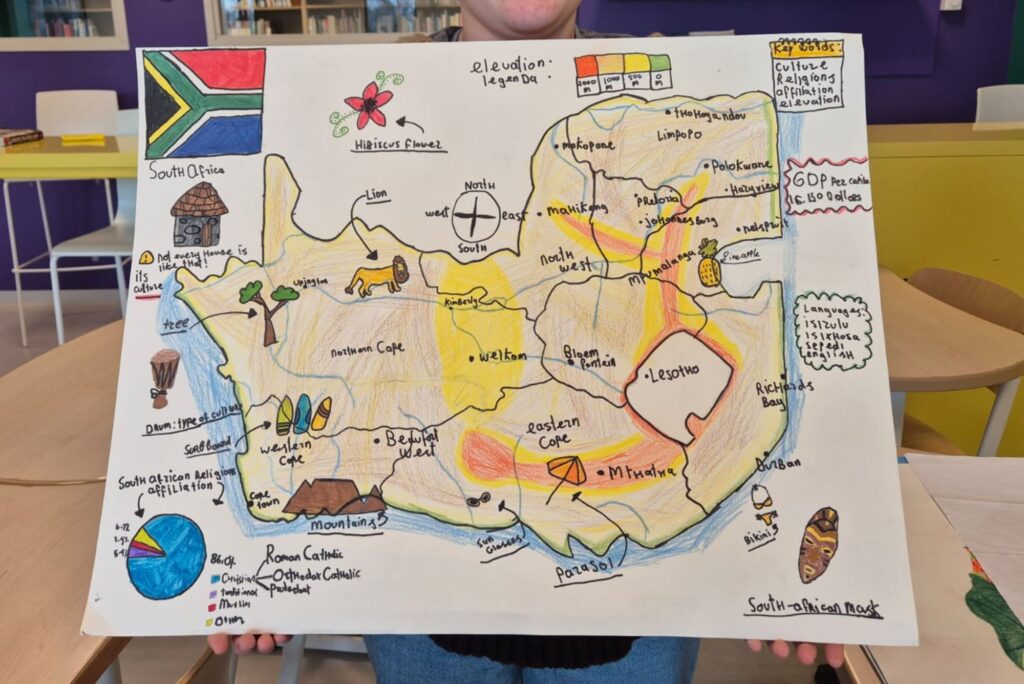 South Africa
not every House is
like that!
its
culture
Hibiscus flower
elevation:
legenda:
2000
M
1000
M
500
M
0
M
Key words:
Culture
Religions
affiliation
elevation
Lion
North
west
east
South
tHoHoyandou
Limpopo
mokopane
Polokwane
Hazyview
Pretoria
johannesburg
Mahikeng
nelspruit
north
west
Mpumalanga
Pineapple
GDP Per capita
6.150 Dollars
Languages:
isizulu
isixHosa
sepedi
english
Upington
tree
northern Cape
Kimberly
welkom
Bloem
fontein
Lesotho
Richards
Bay
Drum: type of culture
Surfboard
western
Cape
Beaufort
West
eastern
Cape
Mthatha
Durban
Cape
town
Mountains
Sun
Glasses
Parasol
Bikini
South-african Mask
South African Religions
affiliation
86.0%
Christian
Roman Catholic
Orthodox Catholic
Protestant
traditional
Muslim
Other